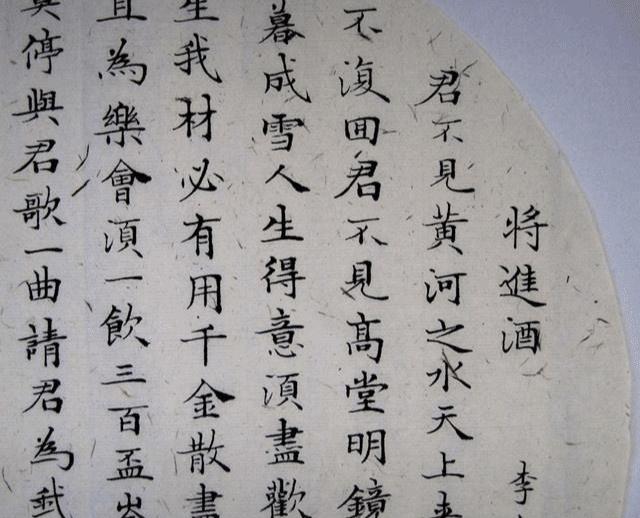 將進酒 李
君不見黃河之水天上來
不復回君不見高堂明鏡
暮成雪人生得意須盡歡
生我材必有用千金散盡
且為樂會須一飲三百盃岑
莫停與君歌一曲請君為我